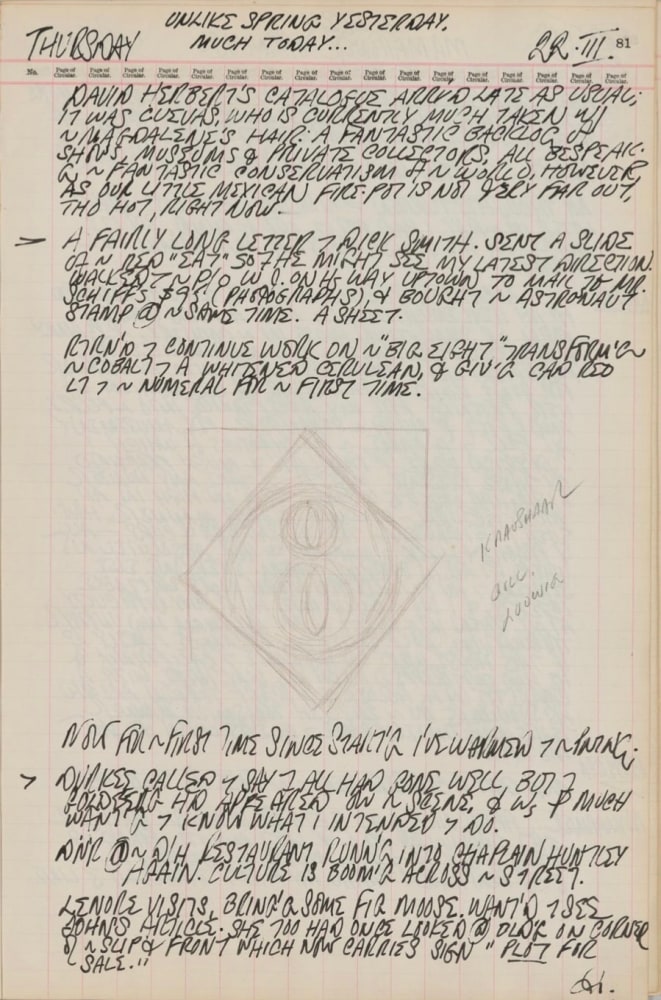 UNLIKE SPRING YESTERDAY.
THURSDAY MUCH TODAY... 22·III. 81
No. Page of Circular. Page of Circular. Page of Circular. Page of Circular. Page of Circular. Page of Circular. Page of Circular. Page of Circular. Page of Circular. Page of Circular. Page of Circular. Page of Circular. Page of Circular. Page of Circular. Page of Circular. Page of Circular. Page of Circular.
DAVID HERBERT'S CATALOGUE ARRIV'D LATE AS USUAL;
IT WAS CUEVAS, WHO IS CURRENTLY MUCH TAKEN W/
~ MAGDALENE'S HAIR. A FANTASTIC BACKLOG OF
SHOWS, MUSEUMS & PRIVATE COLLECTORS, ALL BESPEAK-
G ~ FANTASTIC CONSERVATISM OF ~ WORLD, HOWEVER,
AS OUR LITTLE MEXICAN FIRE-POT IS NOT VERY FAR OUT,
THO HOT, RIGHT NOW.
> A FAIRLY LONG LETTER 7 DICK SMITH. SENT A SLIDE
OF ~ RED "EAT" SO THE MIGHT SEE MY LATEST DIRECTION.
WALKED 7 ~ P/O W/ ON H WAY UPTOWN TO MAIL TO MR.
SCHIFFS $95 (PHOTOGRAPHS), & BOUGHT ~ ASTRONAUT
STAMP @ ~ SAME TIME. A SHEET.
RTRN'D 7 CONTINUE WORK ON ~ "BIG EIGHT" TRANSFORM'G
~ COBALT 7 A WHITENED CERULEAN, & GIV'G CAD RED
LT 7 ~ NUMERAL FOR ~ FIRST TIME.
KRAUSHAAR
GILL.
LUDWIG
NOW FOR ~ FIRST TIME SINCE START'G I'VE WARMED 7 ~ PNTNG;
> DURKEE CALLED 7 SAY 7 ALL HAD GONE WELL BUT 7
GOLDBERG HD APPEARED ON ~ SCENE, & WS MUCH
WANT'G 7 KNOW WHAT I INTENDED 7 DO.
DINR @ ~ D/H RESTAURANT RUNN'G INTO CHAPLAIN HUNTLEY
AGAIN. CULTURE IS BOOM'G ACROSS ~ STREET.
LENORE VISITS, BRING'G SOME FIG MOOSE. WANT'D 7 SEE
JOHN'S ARTICLE. SHE TOO HAD ONCE LOOKED @ BLDG ON CORNER
OF ~ SLIP & FRONT WHICH NOW CARRIES SIGN "PLOT FOR
SALE."